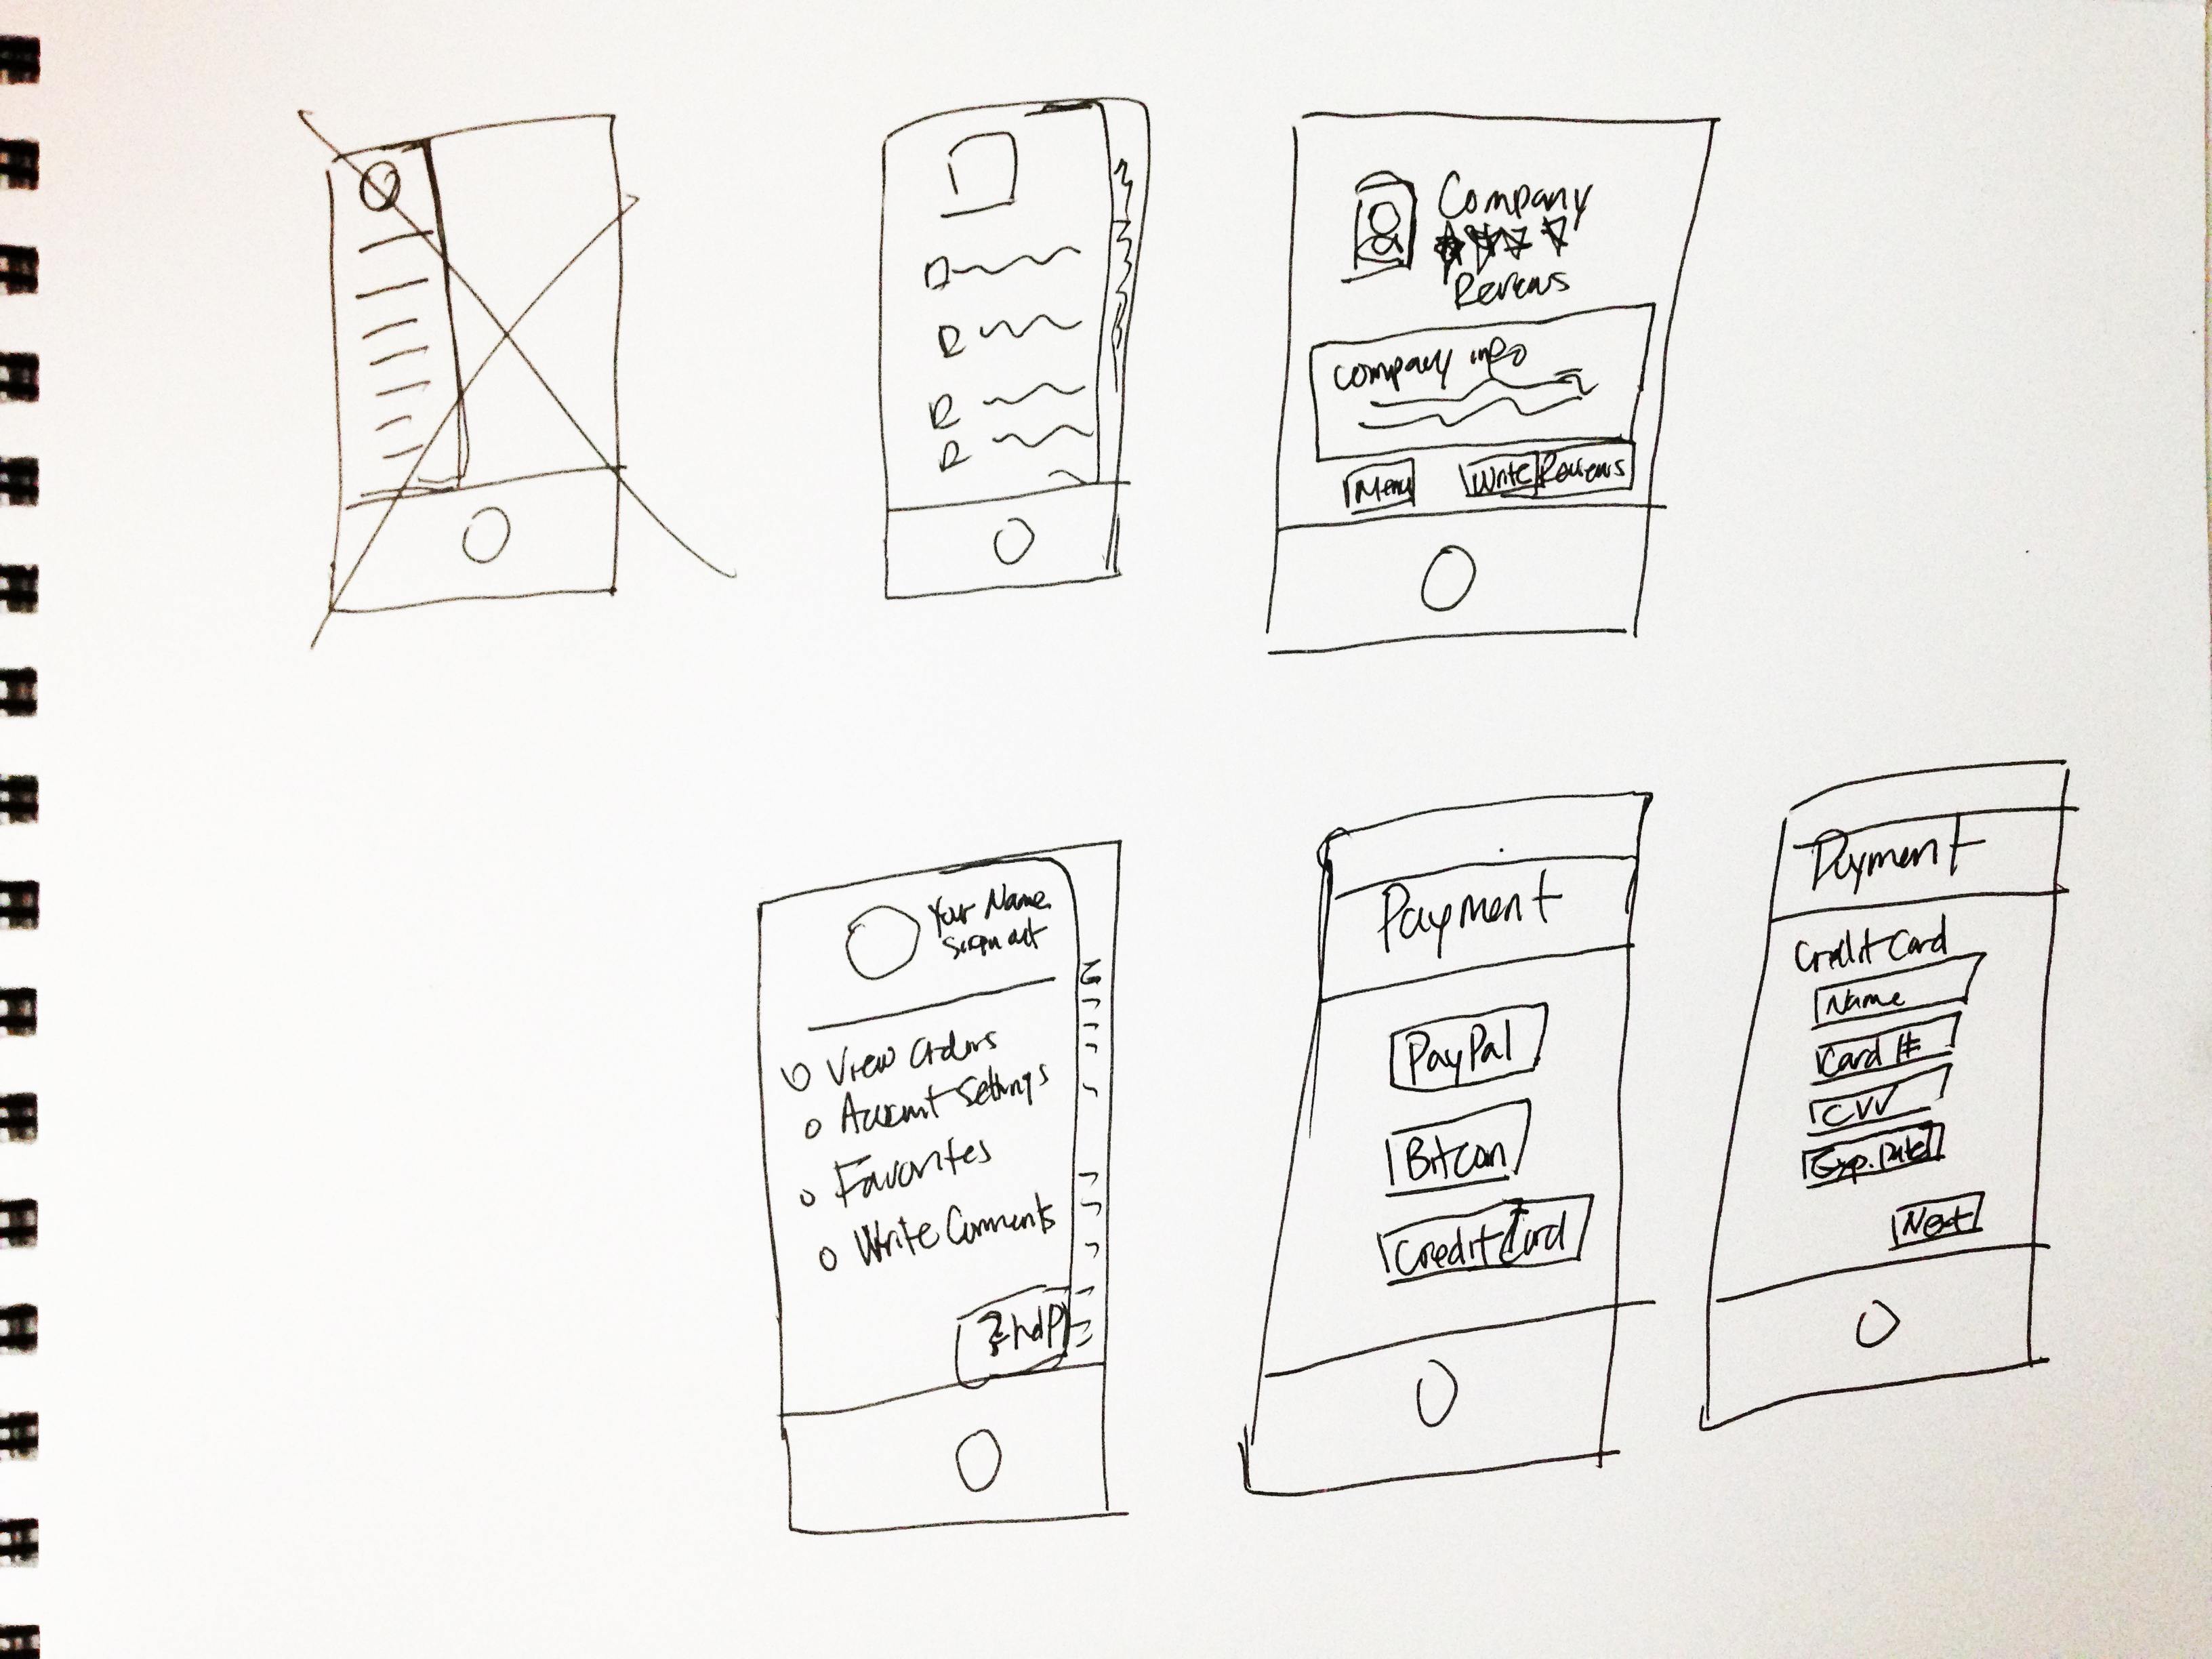 Company
Reviews
company info
Menu
Write Reviews
Your Name
Sign out
View Orders
Account Settings
Favorites
Write Comments
? help
Payment
PayPal
Bitcoin
Credit Card
Payment
Credit Card
Name
Card #
CVV
Exp. Date
Next